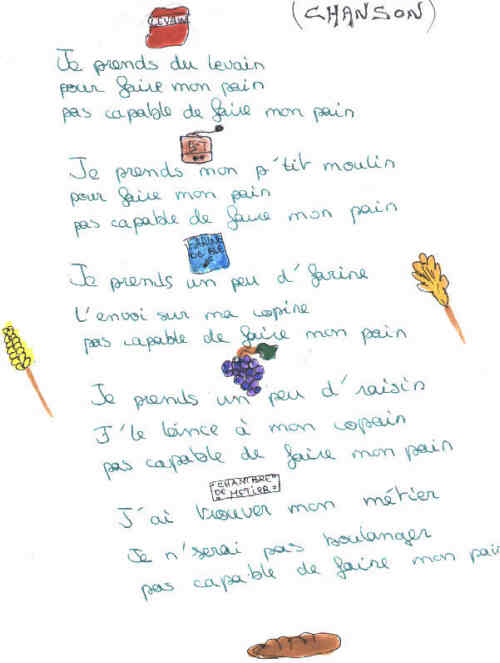 (CHANSON)
LEVAIN
Je prends du levain
pour faire mon pain
pas capable de faire mon pain
Je prends mon p'tit moulin
pour faire mon pain
pas capable de faire mon pain
FARINE
DE BLE
Je prends un peu d'farine
L'envoi sur ma copine
pas capable de faire mon pain
Je prends un peu d'raisin
J'le lance à mon copain
pas capable de faire mon pain
"CHAMBRE"
DE METIER
J'ai trouver mon métier
Je n'serai pas boulanger
pas capable de faire mon pain